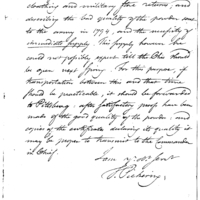 clothing and military store returns, and
describing the bad quality of the powder sent
to the army in 1794, and the necessity of
immediate supply. This supply however she
could not possibly expect till the Ohio should
be open next spring. For this purpose, if
transportation between this and that time
should be practicable, it should be forwarded
to Pittsburg, after satisfactory proofs have been
made of the good quality of the powder, and
copies of the certificate declaring its quality it
may be proper to transmit to the Commander
in Chief.
I am yr. obt. servt.
T. Pickering